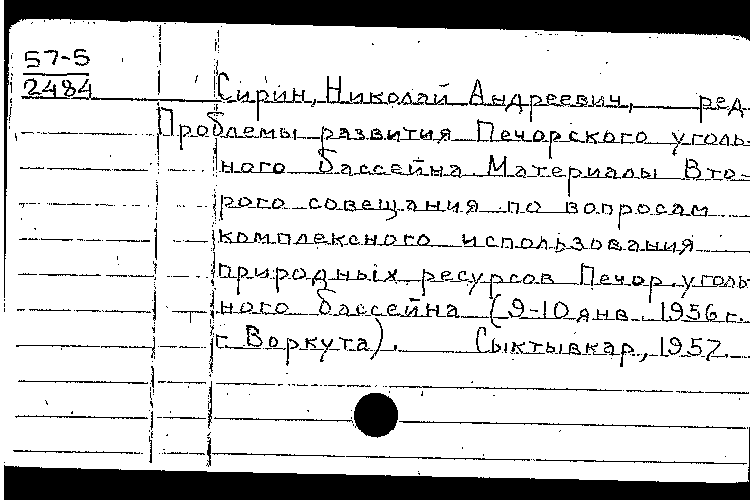 57-5
2484
Сирин, Николай Андреевич, ред.
Проблемы развития Печорского уголь-
ного бассейна. Материалы Вто-
рого совещания по вопросам
комплексного использования
природных ресурсов Печор. уголь
ного бассейна (9-10 янв. 1956 г.
г. Воркута). Сыктывкар, 1957.